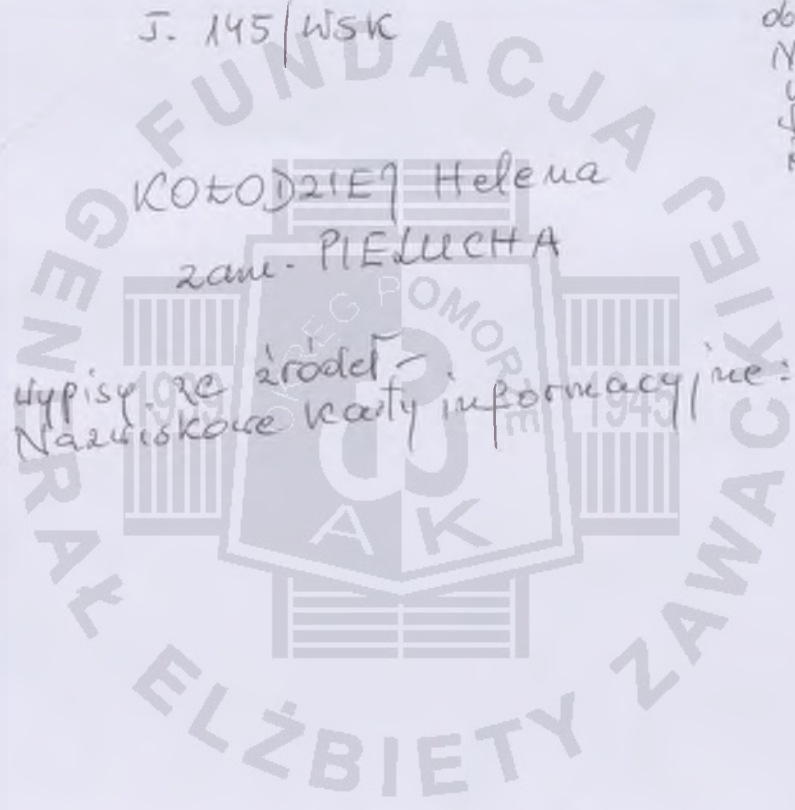 J. 145/WSK
KOŁODZIEJ Helena
zam. PIELUCHA
Wypisy ze źródeł -
Nazwiskowe karty informacyjne:
FUNDACJA GENERAŁ ELŻBIETY ZAWACKIEJ
OKRĘG POMORZE
1939 1945
AK